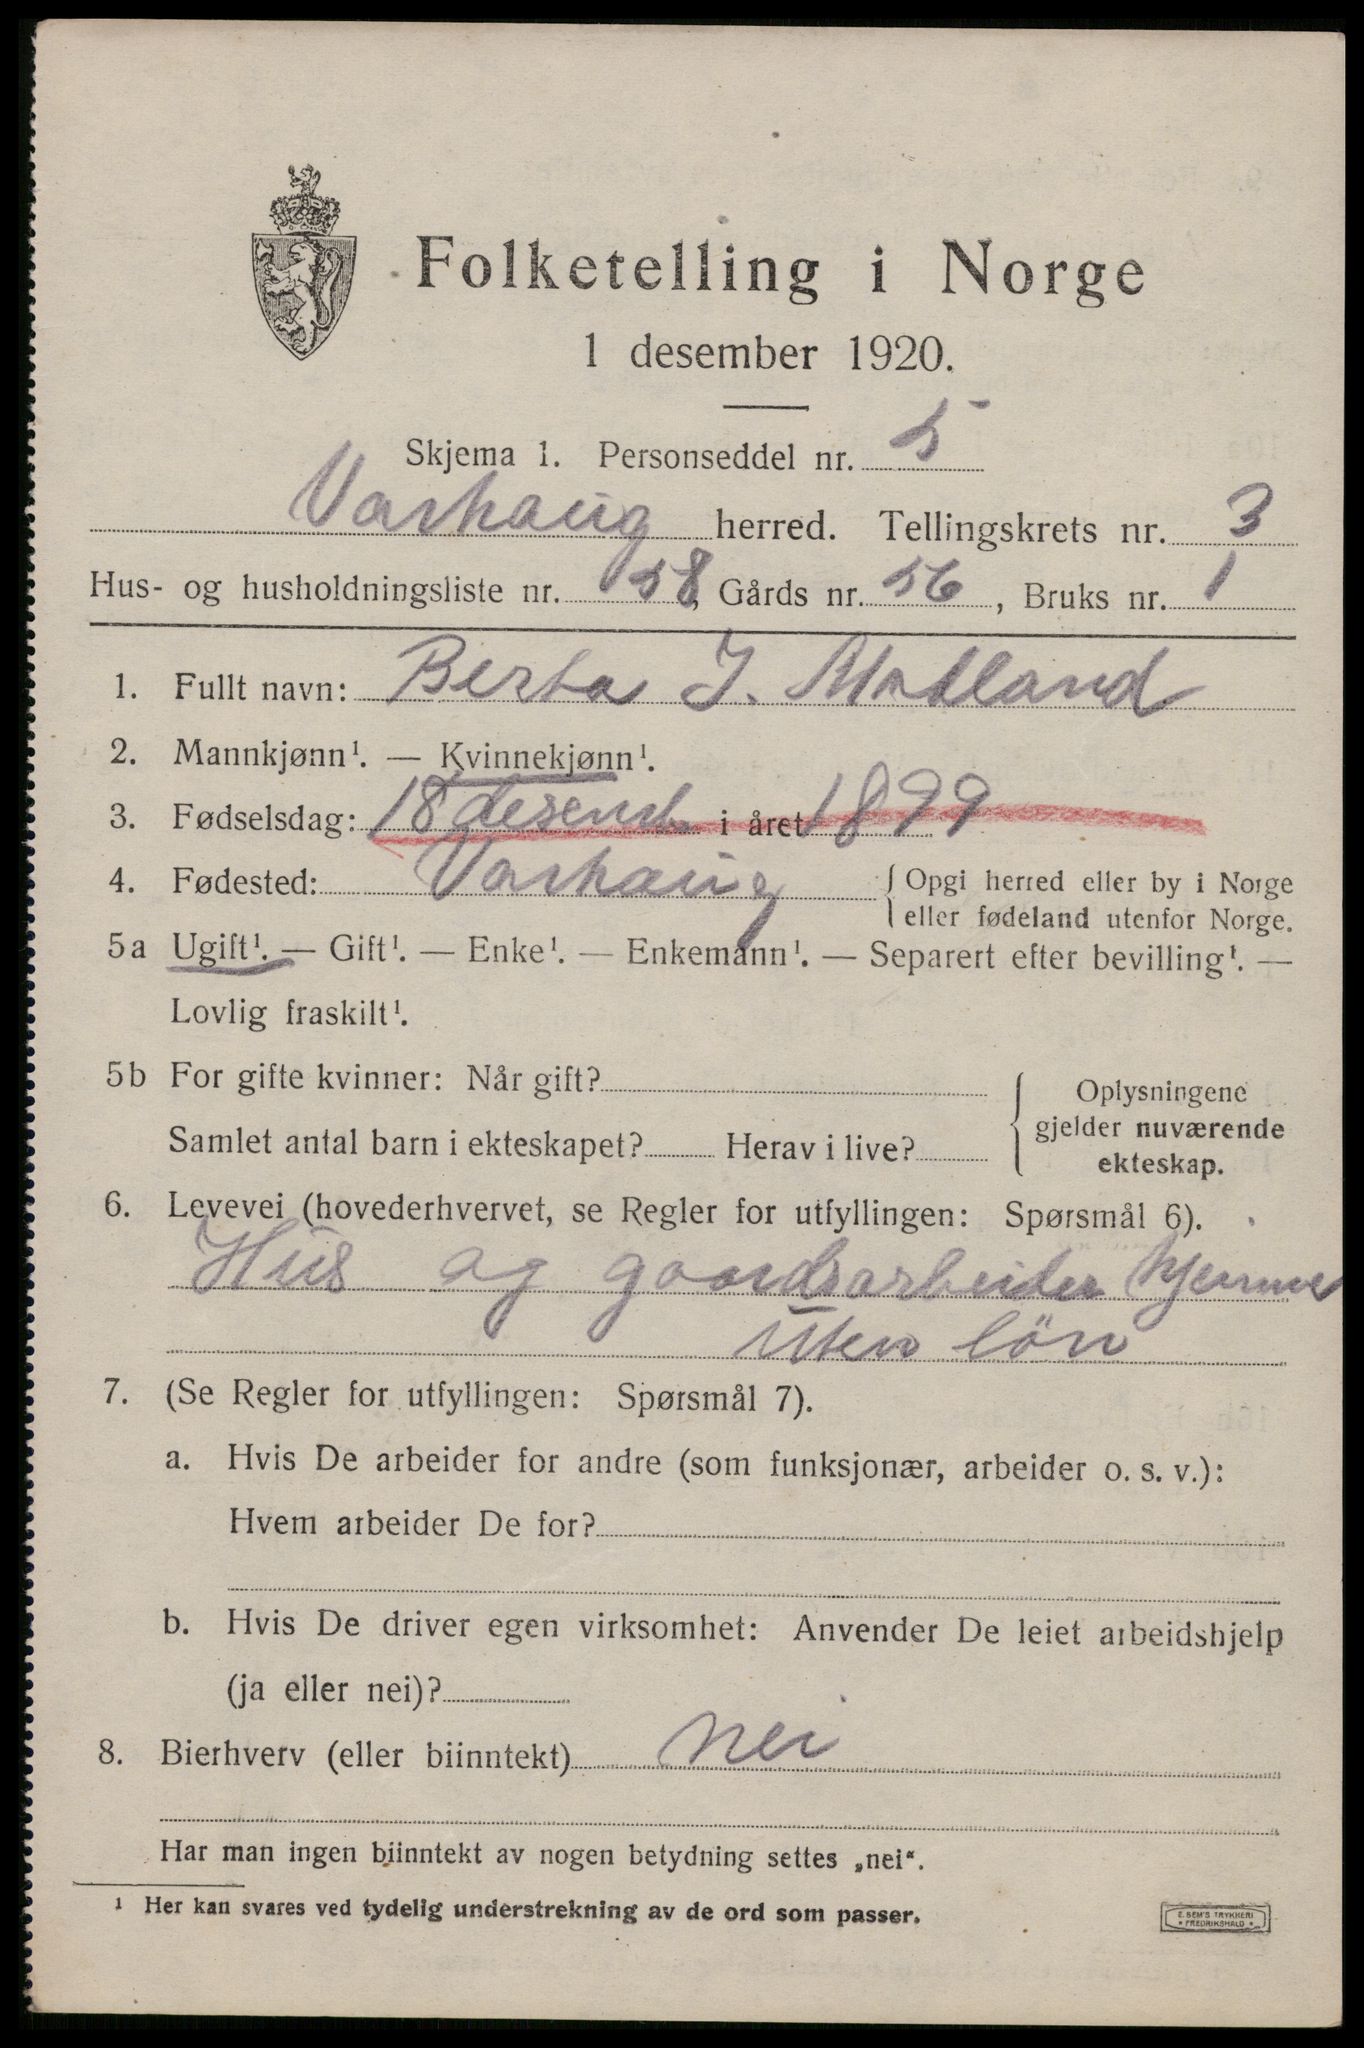 Folketelling i Norge
1 desember 1920.
Skjema 1. Personseddel nr. 5
Varhaug herred. Tellingskrets nr. 3
Hus- og husholdningsliste nr. 58, Gårds nr. 56, Bruks nr. 1
1. Fullt navn: Berta J. Matland
2. Mannkjønn¹. — Kvinnekjønn¹.
3. Fødselsdag: 18 desemb. i året 1899
4. Fødested: Varhaug { Opgi herred eller by i Norge
eller fødeland utenfor Norge.
5a Ugift¹. — Gift¹. — Enke¹. — Enkemann¹. — Separert efter bevilling¹. —
Lovlig fraskilt¹.
5b For gifte kvinner: Når gift?
Samlet antal barn i ekteskapet? Herav i live?
Oplysningene
gjelder nuværende
ekteskap.
6. Levevei (hovederhvervet, se Regler for utfyllingen: Spørsmål 6).
Hus og gaardsarbeider hjemme
uten lön
7. (Se Regler for utfyllingen: Spørsmål 7).
a. Hvis De arbeider for andre (som funksjonær, arbeider o. s. v.):
Hvem arbeider De for?
b. Hvis De driver egen virksomhet: Anvender De leiet arbeidshjelp
(ja eller nei)?
8. Bierhverv (eller biinntekt) nei
Har man ingen biinntekt av nogen betydning settes „nei“.
¹ Her kan svares ved tydelig understrekning av de ord som passer.
E. SEM'S TRYKKERI
* FREDRIKSHALD *